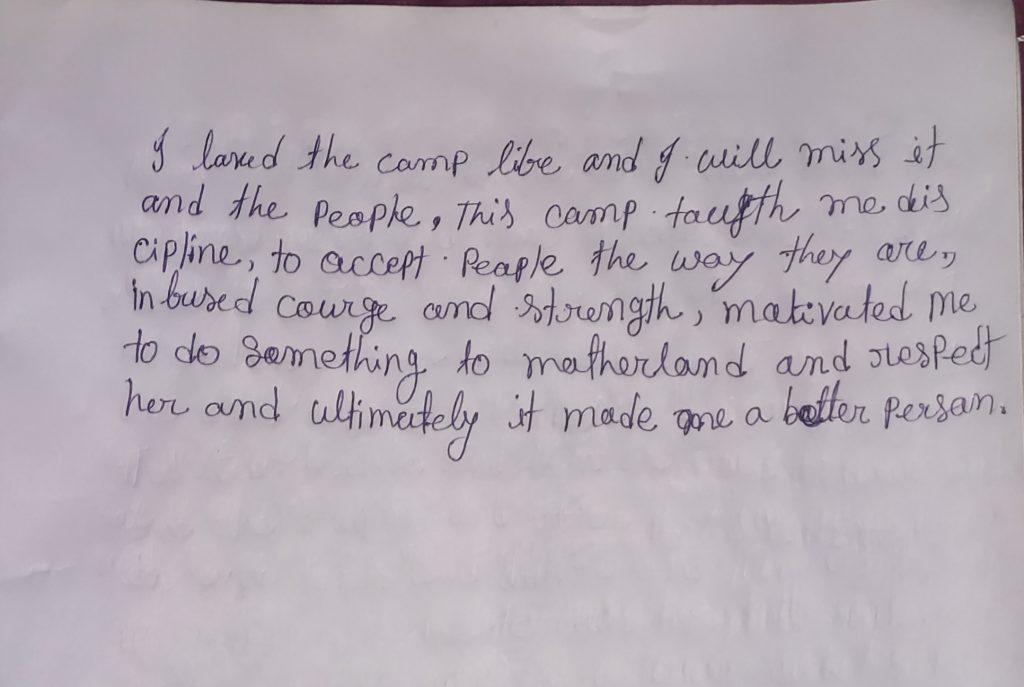 I loved the camp libe and I will miss it
and the People, This camp taugth me dis
cipline, to accept People the way they are,
inbused courge and strength, motivated me
to do Something to motherland and respect
her and ultimately it made me a better Person.